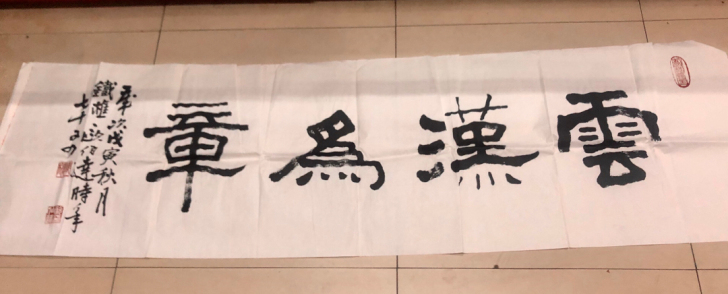 雲漢為章
歲次戊寅秋月
鐵達時年
七十又四